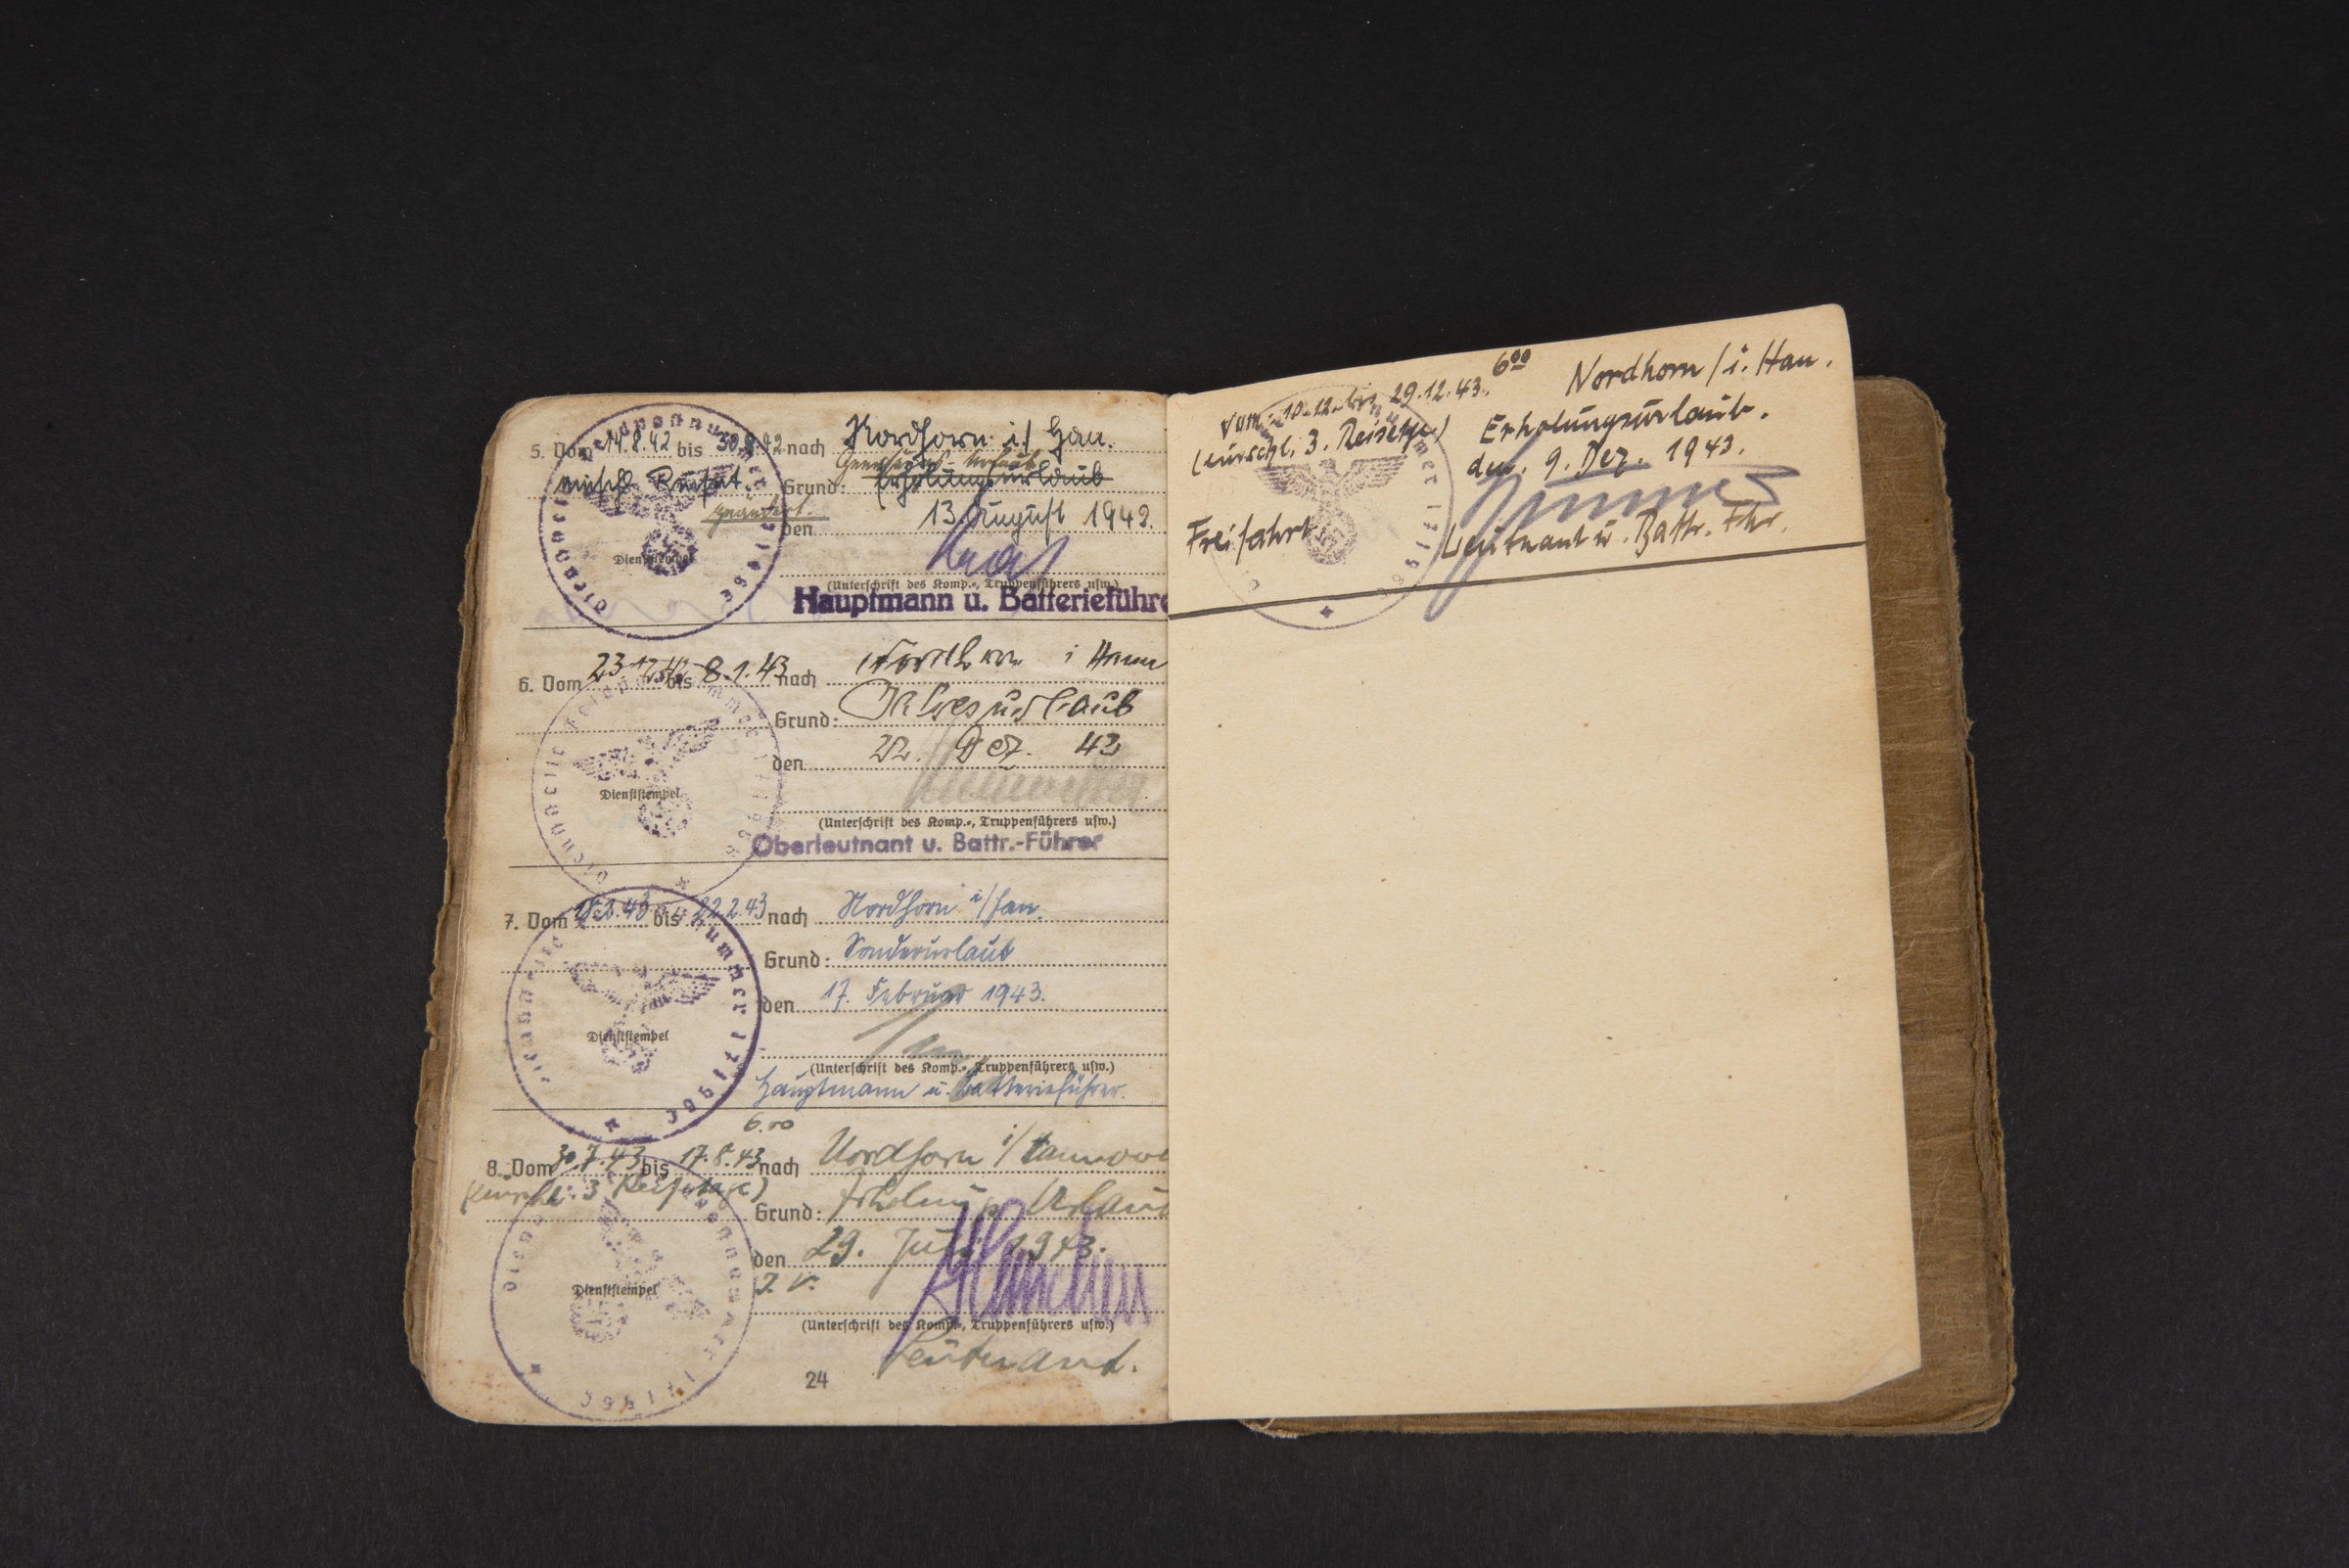 5. Vom 14.8.42 bis 30.8.42 nach Nordhorn i/ Han.
einschl. Reiset. Grund: Genesungs Urlaub
Erholungsurlaub
geändert.
den 13. August 1942.
Dienststempel
(Unterschrift des Komp.-, Truppenführers usw.)
Hauptmann u. Batterieführe
Dienststelle Feldpostnummer
6. Vom 23.12.42 bis 8.1.43 nach Nordhorn i Hann
Grund: Jahresurlaub
den 22. Dez. 42
Dienststempel
(Unterschrift des Komp.-, Truppenführers usw.)
Oberleutnant u. Battr.-Führer
Dienststelle Feldpostnummer
7. Vom 18.2.43 bis 22.2.43 nach Nordhorn i/Han.
Grund: Sonderurlaub
den 17. Februar 1943.
Dienststempel
(Unterschrift des Komp.-, Truppenführers usw.)
Hauptmann u. Batterieführer.
6.00
8. Vom 30.7.43 bis 17.8.43 nach Nordhorn i/Hannove
(einschl. 3 Reisetage)
Grund: Erholungs Urlaub
den 29. Juli 1943.
J. V.
Dienststempel
(Unterschrift des Komp.-, Truppenführers usw.)
Leutnant.
24
vom 10.12. bis 29.12.43. 6⁰⁰ Nordhorn / i. Han.
(einschl. 3. Reisetge.) Erholungsurlaub.
den. 9. Dez. 1943.
Freifahrt. Leutnant u. Battr. Fhr.